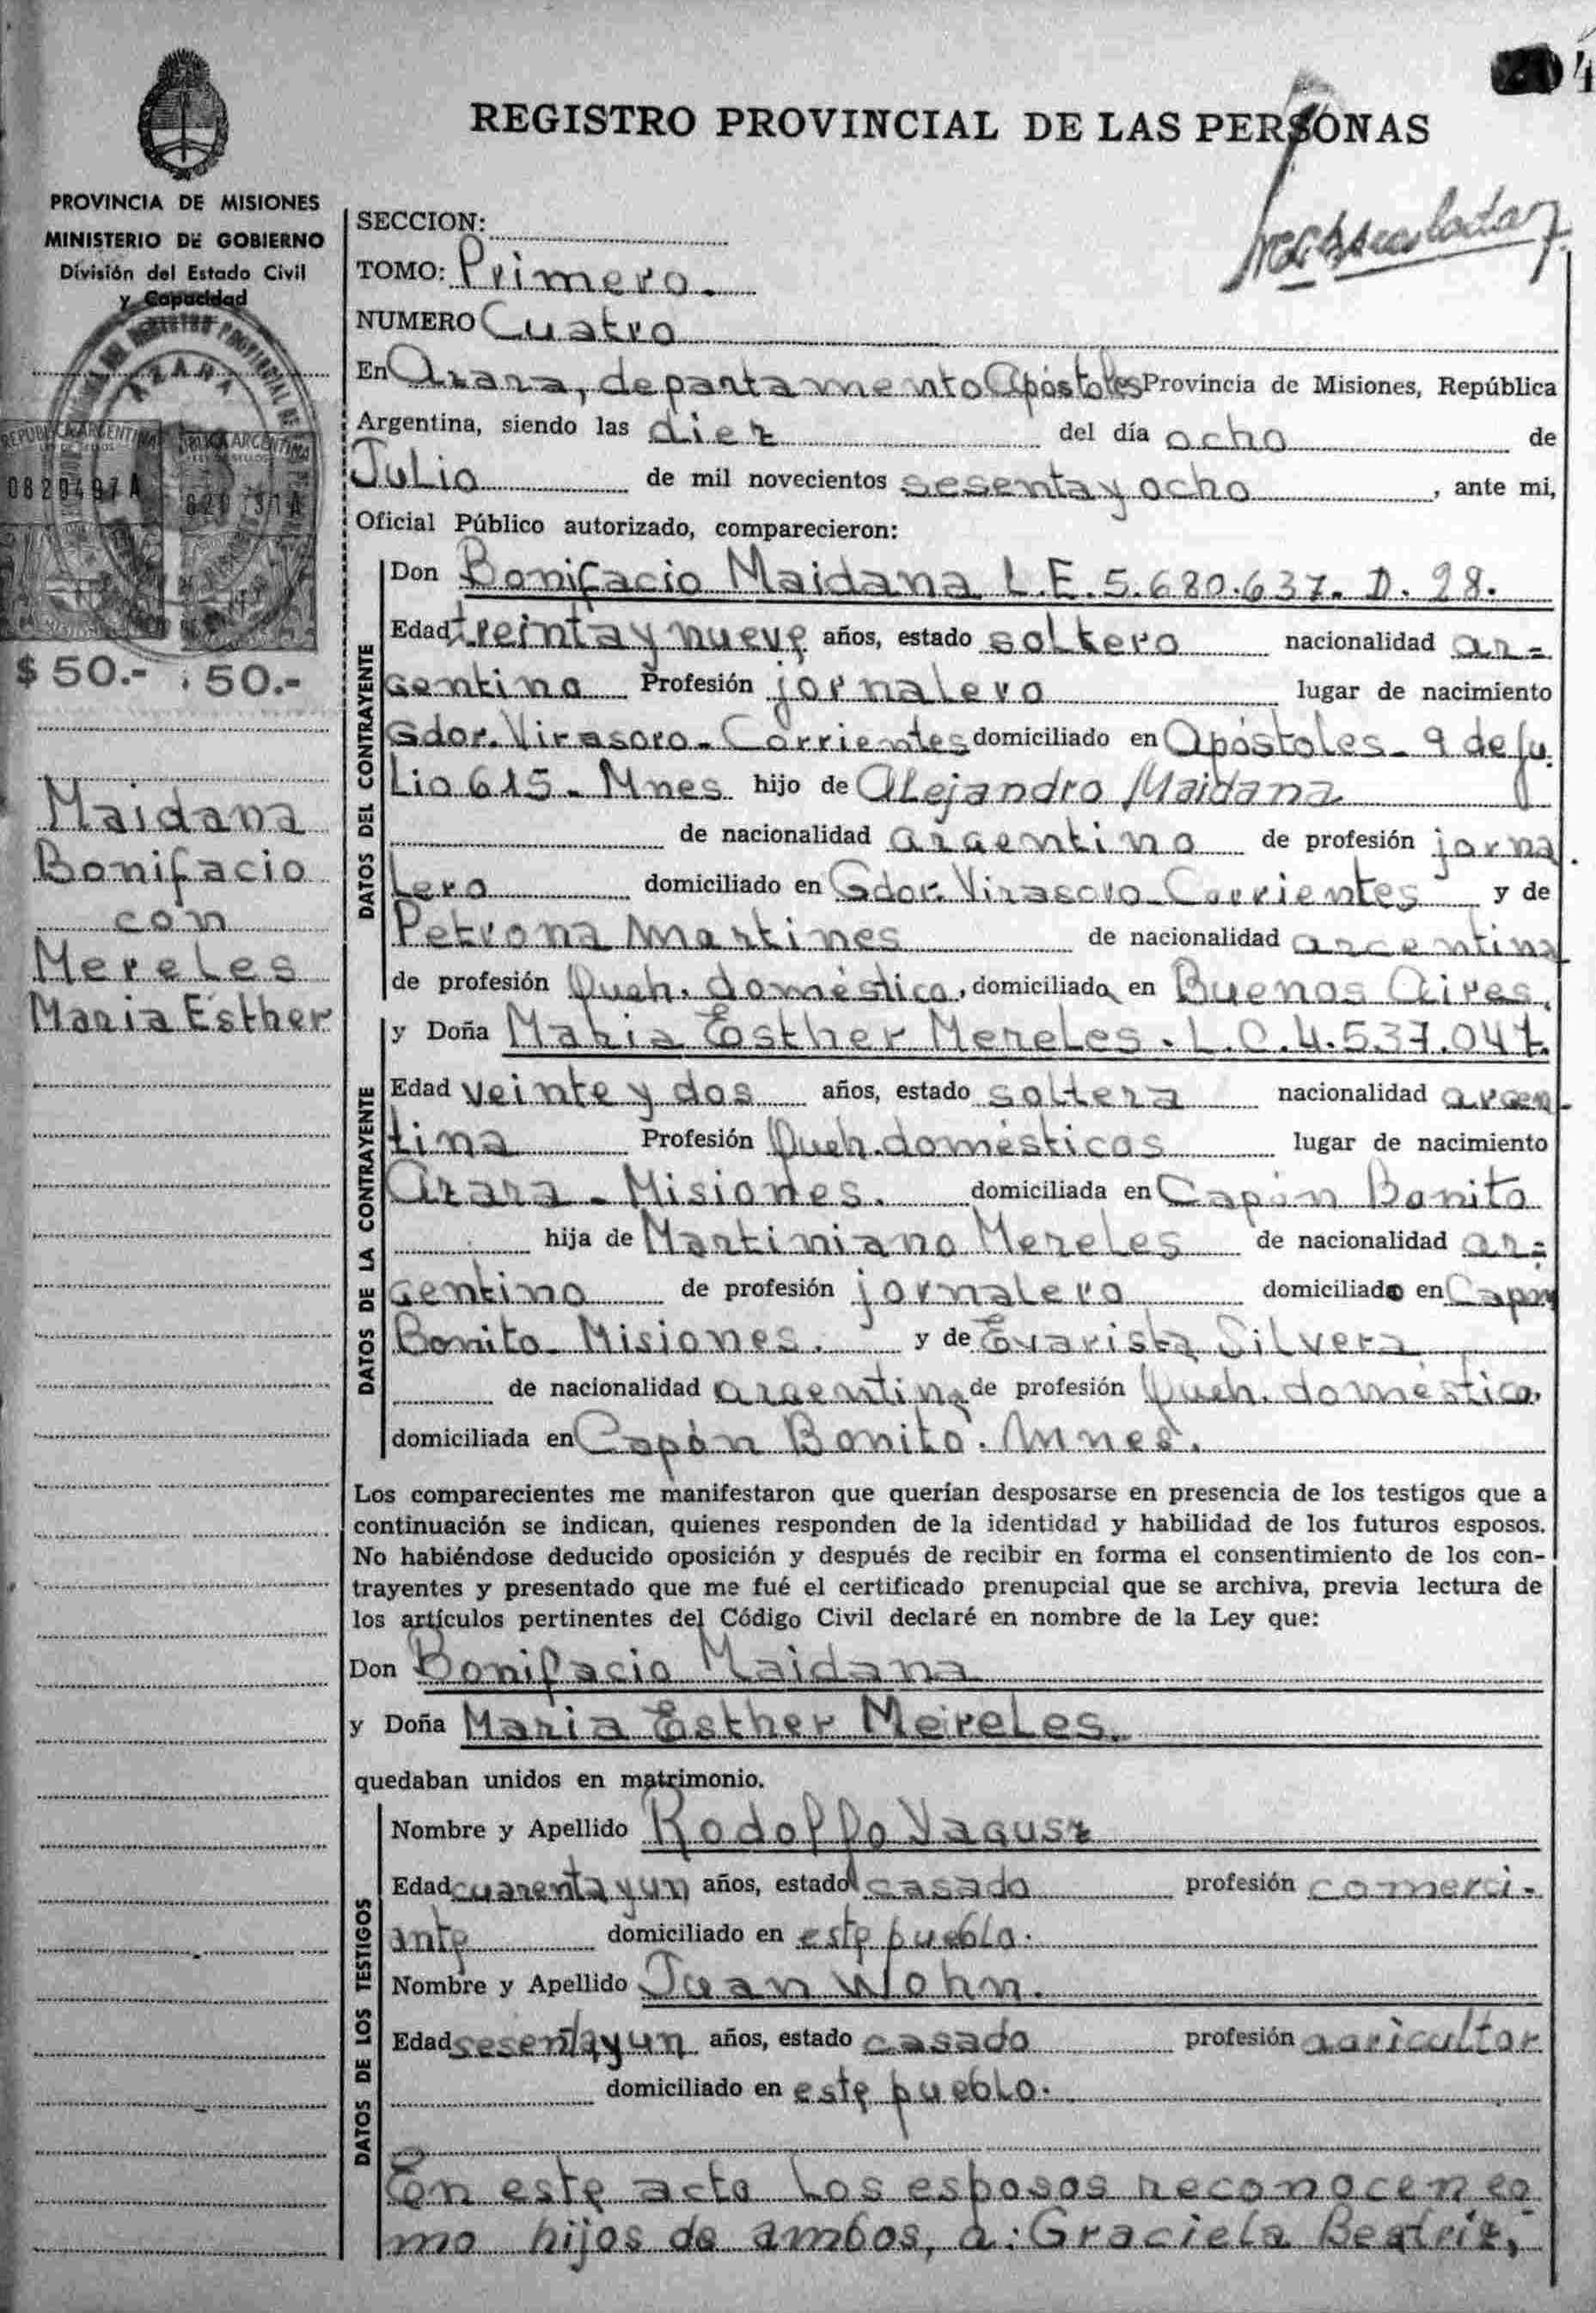 4
REGISTRO PROVINCIAL DE LAS PERSONAS
PROVINCIA DE MISIONES
MINISTERIO DE GOBIERNO
División del Estado Civil
y Capacidad
AZARA
REPUBLICA ARGENTINA
$ 50.- 50.-
Maidana
Bonifacio
con
Mereles
Maria Esther
SECCION:
TOMO: Primero.
NUMERO Cuatro
En Azara, departamento Apóstoles Provincia de Misiones, República
Argentina, siendo las diez del día ocho de
Julio de mil novecientos sesenta y ocho, ante mi,
Oficial Público autorizado, comparecieron:
DATOS DEL CONTRAYENTE
Don Bonifacio Maidana L.E. 5.680.637. D. 28.
Edad treinta y nueve años, estado soltero nacionalidad ar-
gentino Profesión jornalero lugar de nacimiento
Gdor. Virasoro - Corrientes domiciliado en Apóstoles - 9 de Ju
lio 615 - Mnes hijo de Alejandro Maidana
de nacionalidad argentino de profesión jorna
lero domiciliado en Gdor. Virasoro - Corrientes y de
Petrona Martines de nacionalidad argentina
de profesión Queh. doméstico, domiciliada en Buenos Aires,
DATOS DE LA CONTRAYENTE
y Doña Maria Esther Mereles. L.C. 4.537.047.
Edad veinte y dos años, estado soltera nacionalidad argen
tina Profesión Queh. domésticos lugar de nacimiento
Azara - Misiones. domiciliada en Capón Bonito
hija de Martiniano Mereles de nacionalidad ar-
gentino de profesión jornalero domiciliado en Capón
Bonito - Misiones. y de Evarista Silvera
de nacionalidad argentina de profesión Queh. doméstico,
domiciliada en Capón Bonito. Mnes.
Los comparecientes me manifestaron que querían desposarse en presencia de los testigos que a
continuación se indican, quienes responden de la identidad y habilidad de los futuros esposos.
No habiéndose deducido oposición y después de recibir en forma el consentimiento de los con-
trayentes y presentado que me fué el certificado prenupcial que se archiva, previa lectura de
los artículos pertinentes del Código Civil declaré en nombre de la Ley que:
Don Bonifacio Maidana
y Doña Maria Esther Meireles.
quedaban unidos en matrimonio.
DATOS DE LOS TESTIGOS
Nombre y Apellido Rodolfo Yagusz
Edad cuarenta y un años, estado casado profesión comerci-
ante domiciliado en este pueblo.
Nombre y Apellido Juan Wohn.
Edad sesenta y un años, estado casado profesión agricultor
domiciliado en este pueblo.
En este acto los esposos reconocen co
mo hijos de ambos, a: Graciela Beatriz,